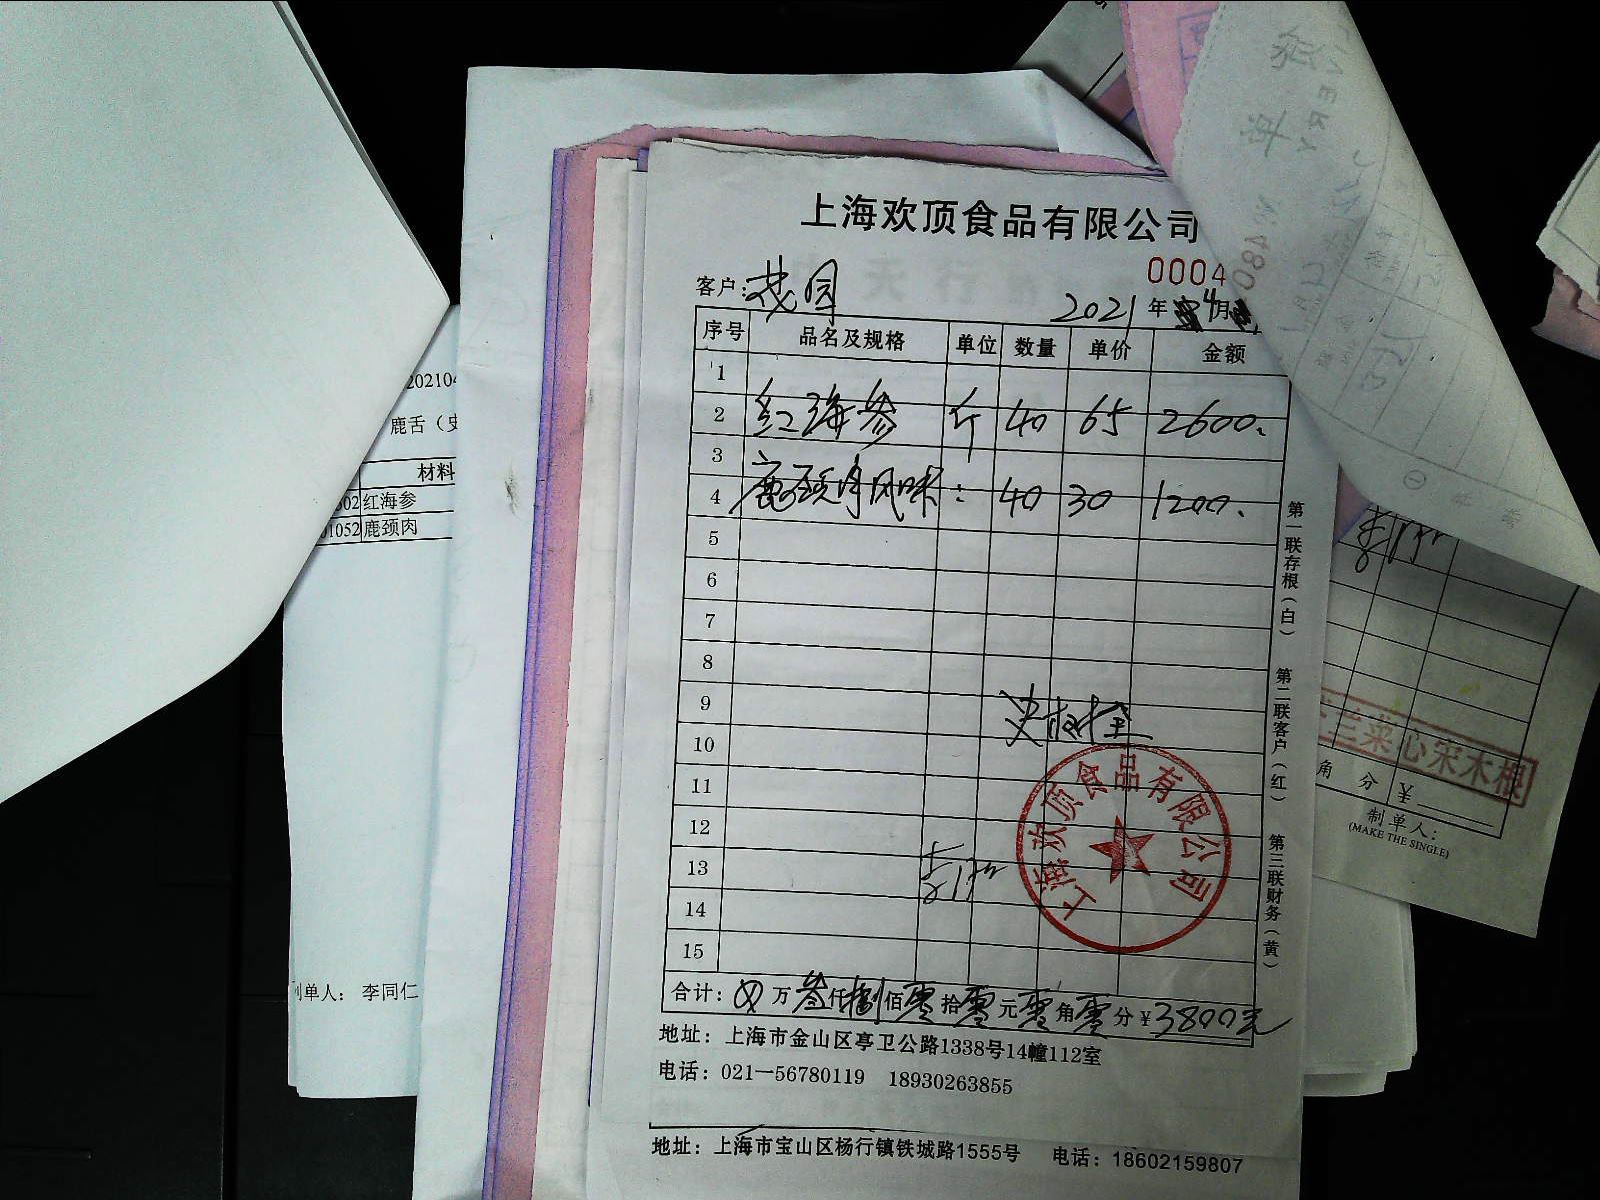 上海欢顶食品有限公司
0004
客户：茂园
2021年4月
序号 品名及规格 单位 数量 单价 金额
1
2 红海参 斤 40 65 2600.
3
4 鹿颈 风味 : 40 30 1200.
5
6
7
8
9
10
11
12
13
14
15
上海欢顶食品有限公司
合计：万叁仟捌佰零拾零元零角零分￥3800元
地址：上海市金山区亭卫公路1338号14幢112室
电话：021—56780119 18930263855
第一联存根（白） 第二联客户（红） 第三联财务（黄）
地址：上海市宝山区杨行镇铁城路1555号 电话：18602159807
202104
鹿舌（
材料
02 红海参
1052 鹿颈肉
制单人：李同仁
兰菜心宋木根
角 分 ￥
制单人：
(MAKE THE SINGLE)